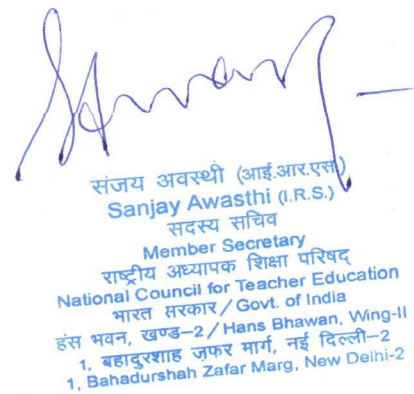 संजय अवस्थी (आई.आर.एस.)
Sanjay Awasthi (I.R.S.)
सदस्य सचिव
Member Secretary
राष्ट्रीय अध्यापक शिक्षा परिषद्
National Council for Teacher Education
भारत सरकार / Govt. of India
हंस भवन, खण्ड–2 / Hans Bhawan, Wing-II
1, बहादुरशाह जफर मार्ग, नई दिल्ली–2
1, Bahadurshah Zafar Marg, New Delhi-2